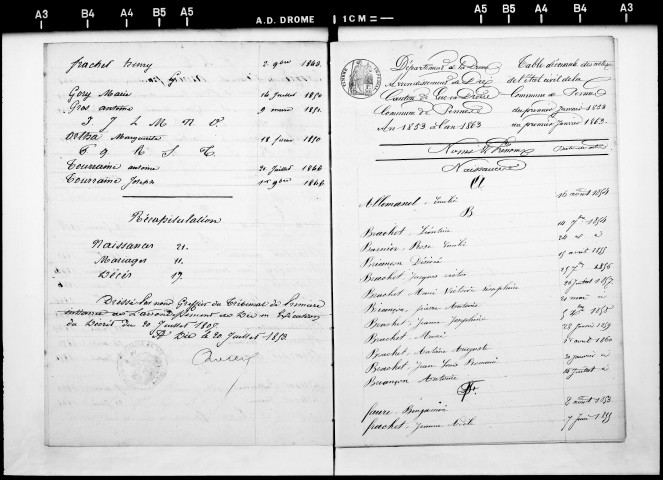 A3 B4 A4 B5 A5 A.D. DROME 1 CM A5 B5 A4 B4 A3
frachet Remy 2 9bre
Gory Marie 14 Juillet 1850
Gros antoine 9 mars 1851
I J L M N O
Marguerite 18 février 1850
P Q R S T
Tourraine antoine 20 Juillet 1846
Tourraine Joseph 1er 9bre 1846
Récapitulation
Naissances 21.
Mariages 11.
Décès 17.
Dressé par nous Greffier du Tribunal de Première
instance de l'arrondissement de Die en Exécution
du Décret du 20 Juillet 1807.
A Die le 20 Juillet 1853.
Département de la Drome
Arrondissement de Die
Canton de Luc en Diois
Commune de Pennes
An 1853 à l'an 1863
Table décennale des actes
de l'état civil de la
Commune de Pennes
du premier Janvier 1853
au premier Janvier 1863.
Noms & Prénoms
Naissances
A
Allemand 16 août 1854
B
Brachet 14 7bre 1854
Barnier Rose 24 id
Briançon Désiré 15 avril 1855
Brachet Jacques 15 7bre 1856
Brachet Marie Victoire 26 juillet 1857
Briançon pierre Antoine 20 mai
Brachet Jeanne Joséphine 5 1858
Brachet Marie 28 1859
Brachet Antoine Auguste avril 1860
Brachet Jean Louis Romain 20 janvier
Briançon Antoine juillet
F
faure Benjamin 2 août 1853
frachet Jeanne 7 juin 1855